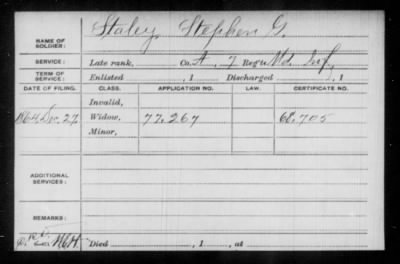 NAME OF SOLDIER: Staley, Stephen G.
SERVICE: Late rank, Co. A, 7 Reg't Md. Inf.
TERM OF SERVICE: Enlisted , 1 Discharged , 1
DATE OF FILING. CLASS. APPLICATION NO. LAW. CERTIFICATE NO.
Invalid,
1864 Dec. 27 Widow, 77,267 68,705
Minor,
ADDITIONAL SERVICES:
REMARKS:
1864 Died , 1 , at